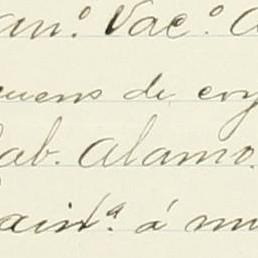 an.º Vac.º
uens de
Cab. Alamo.
aint.ª á